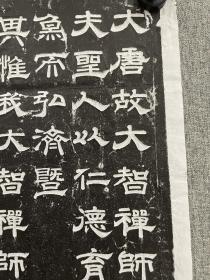 大唐故大智禪師
夫聖人以仁德育
為而弘濟暨
其惟我大智禪師